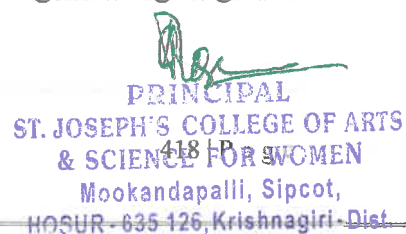 PRINCIPAL
ST. JOSEPH'S COLLEGE OF ARTS
& SCIENCE FOR WOMEN
418 | P a g
Mookandapalli, Sipcot,
HOSUR - 635 126, Krishnagiri - Dist.